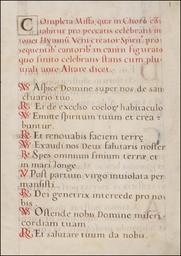 Completa Missa, quæ in Choro cā
tabitur pro peccatis celebrans in
tonet Hymnū Veni creator Spirit, pro
sequentib cantorib in cantu figurato
quo finito celebrans stans cum pluvi
ali ante Altare dicet.
V Aspice Domine super nos de san
ctuario tuo.
R Et de excelso coelor habitaculo
V Emitte spiritum tuum et crea
buntur.
R Et renovabis faciem terre
V Exaudi nos Deus salutaris noster
R Spes omnium finium terre et
in mari longe.
V Post partum virgo inviolata per
mansisti.
R Dei genetrix intercede pro no
bis.
V Ostende nobis Domine miseri
cordiam tuam
R Et salutare tuum da nobis.